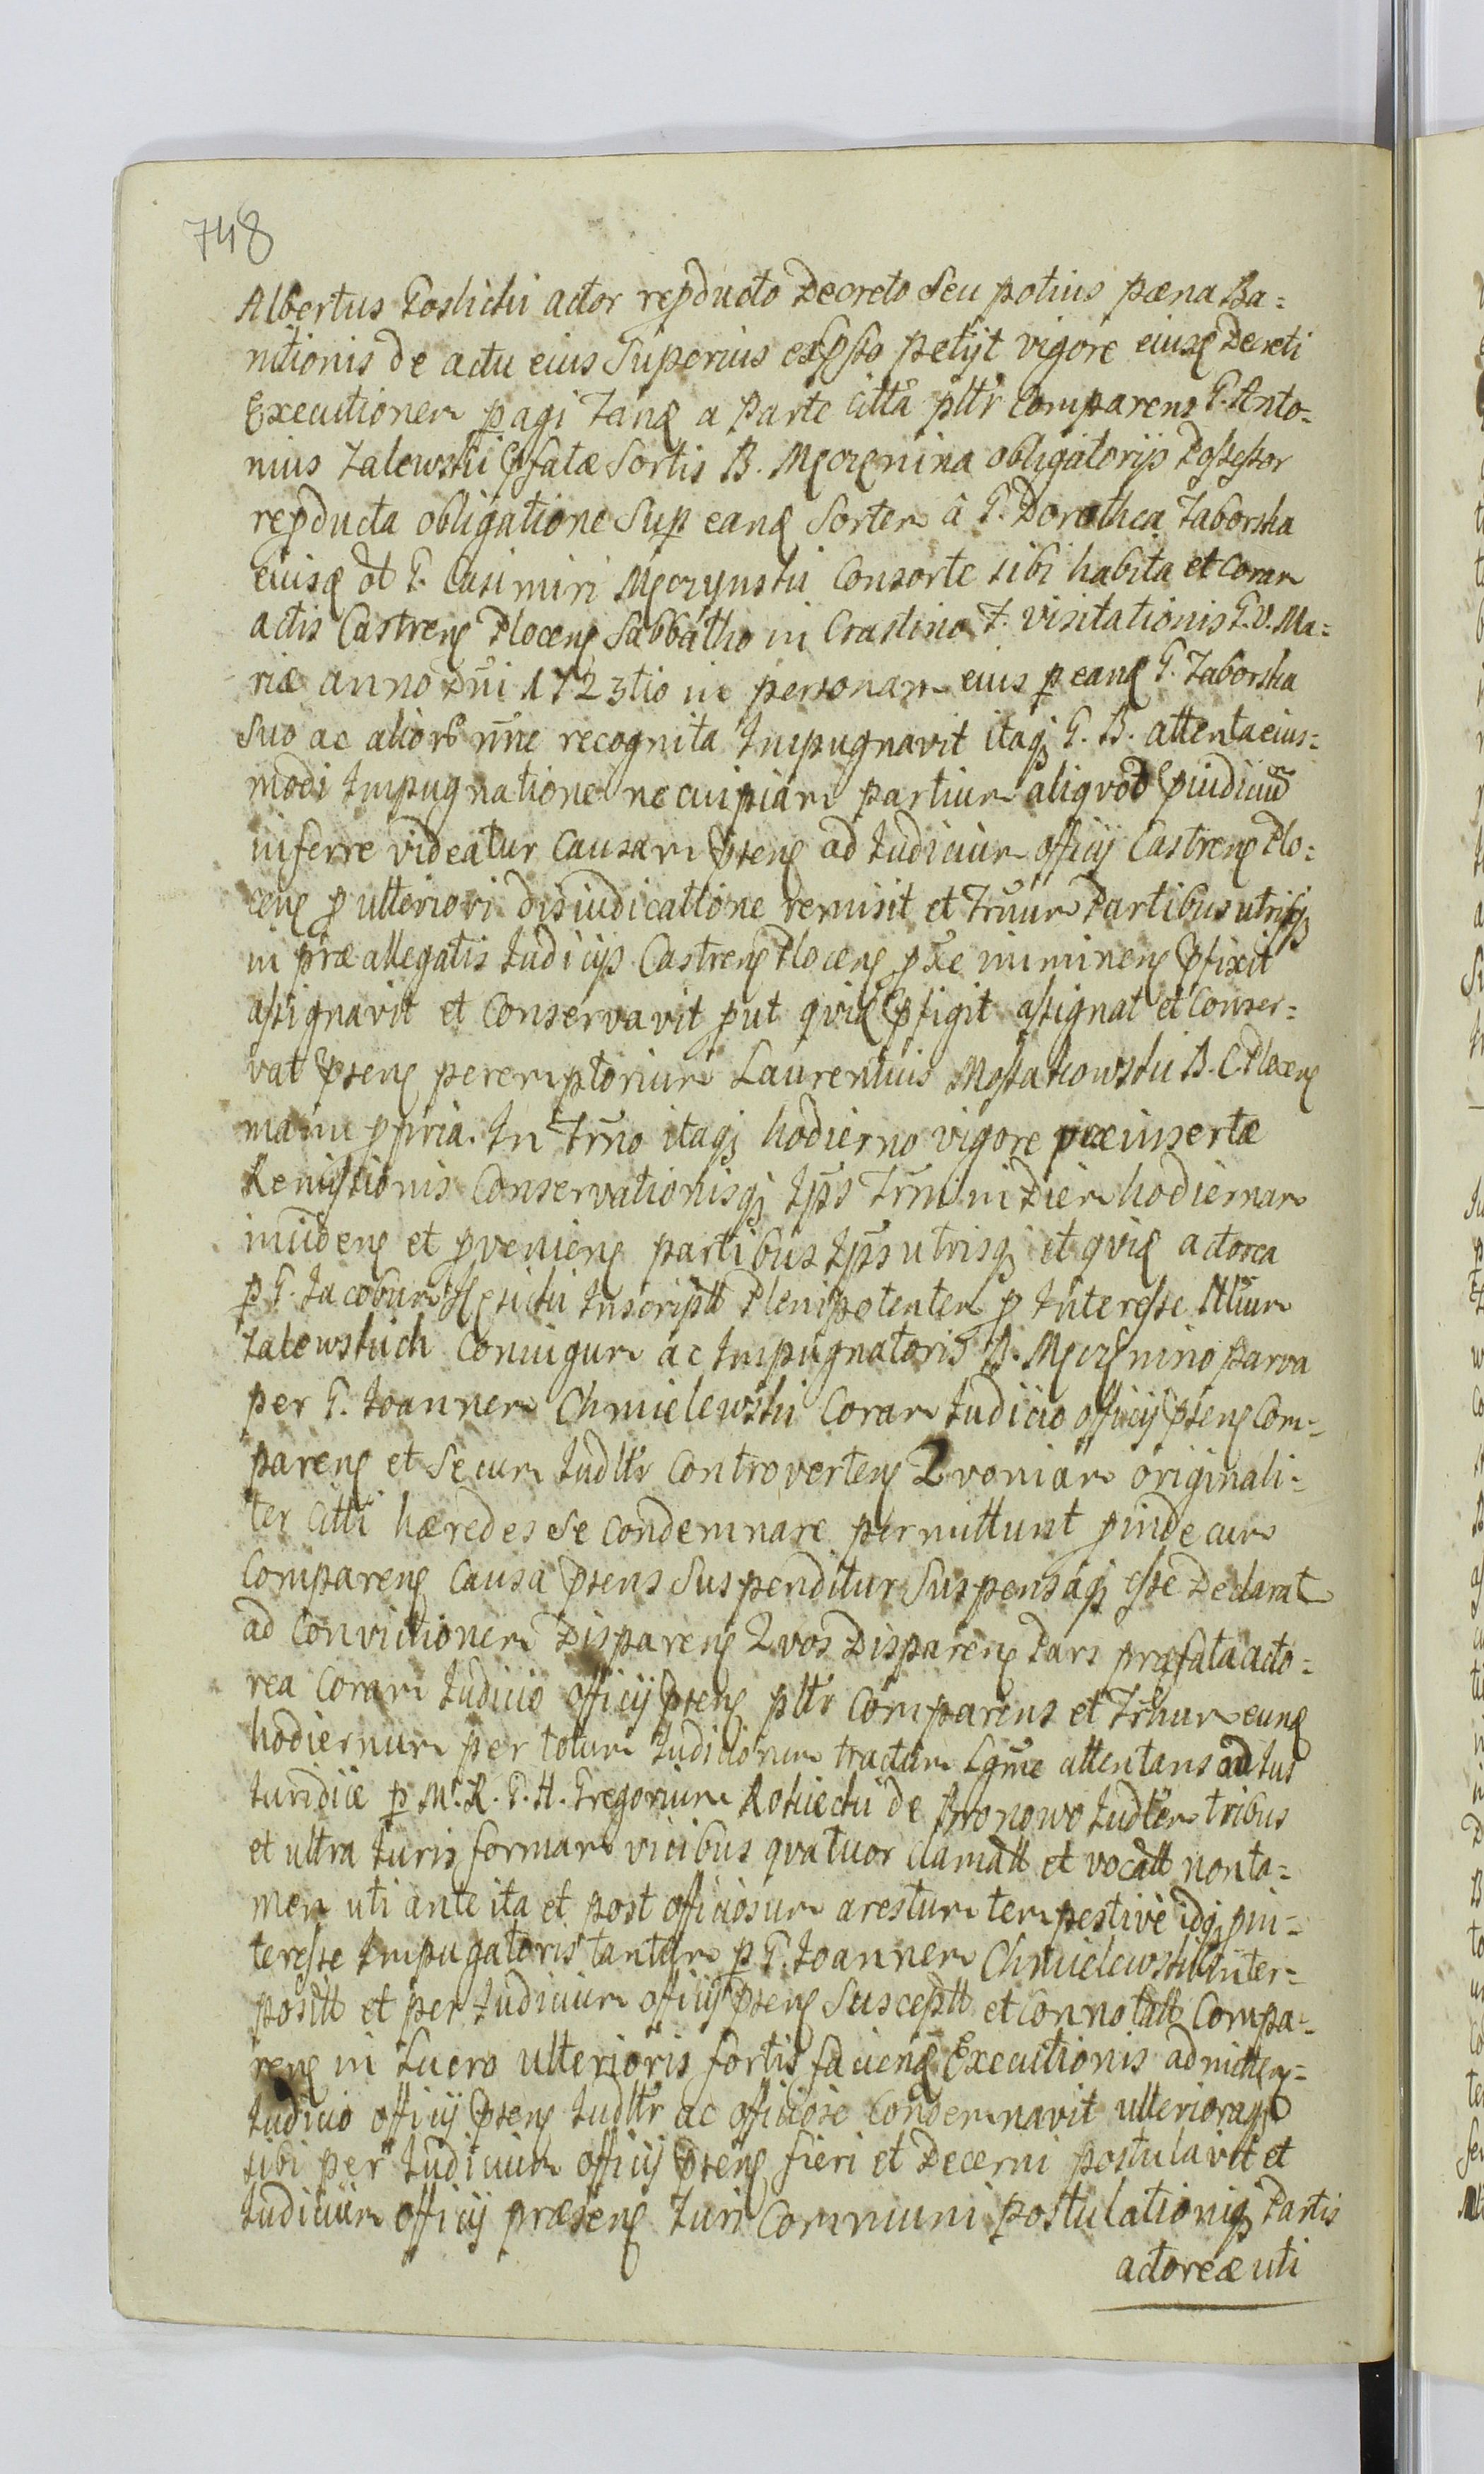 748
Albertus Goslicki actor repducto Decreto Seu potius pæna Ba=
nitionis de actu eius Superius expsso petijt vigore eiusd Decreti
Executionem pagi Tand a Parte Citta pltr Comparens G. Anto=
nius Zalewski pfatæ Sortis B. Męczenina obligatorijs Possessor
repducta obligatione Sup eand Sortem â G. Dorothea Zaborska
eiusd ot G. Casimiri Męczynski Consorte sibi habita et Coram
actis Castren Plocen Sabbatho in Crastino F. visitationis G. V. Ma=
riæ anno Dni 1723tio in personam eius p eand G. Zaborska
Suo ac alior nne recognita Impugnavit itaq G. B. attenta eius=
modi Impugnatione ne cuipiam partium aliqvod pudicium
inferre videatur Causam psen ad Iudicium officij Castren Plo=
cen p ulteriori disiudicattione remisit et Trnum Partibus utrisq
in præallegatis Iudicijs Castren Plocen pxe imminen pfixit
assignavit et Conservavit put qvid pfigit assignat et Conser=
vat psen peremptorium Laurentius Mostakowski B. C. Plocen
manu ppria. In Trno itaq hodierno vigore præinsertæ
Remissionis Conservationisq Ips Trni in Diem hodiernam
inciden et pvenien partibus Ips utrisq et qvid actorea
p G. Iacobum Hęsicki Inscriptt Plenipotentem p Interesse Ittium
Zalewskich Coniugum ac Impugnatoris B. Męczenino parva
per G. Ioannem Chmielewski Coram Iudicio officij psen Com=
paren et Secum Iudltr Controverten Qvoniam originali=
ter Citti hæredes Se Condemnare permittunt pinde cum
Comparen Causa psens Suspenditur Suspensaq esse Declarat
ad Convictionem Disparen Qvos Disparen Pars præfata acto=
rea Coram Iudicio officij psen pltr Comparens et Trnum eund
hodiernum per totum Iudiciorum tractum Lgme attentans ad Ius
Iuridice p M. R. G. H. Gregorium Rokicki de Bronowo Iudlem tribus
et ultra Iuris formam vicibus qvatuor clamatt et vocatt non ta=
men uti ante ita et post officiosum arestum tempestive idq p in=
teresse Impugatoris tantum p G. Ioannem Chmielewski inter=
positt et per Iudicium officij psen Susceptt et Connotatt Compa=
ren in Lucro ulterioris fortis faciend Executionis admitten=
Iudicio officij psen Iudltr ac officiose Condemnavit ulterioraq
sibi per Iudicium officij psen fieri et Decerni postulavit et
Iudicium officij præsen Iuri Communi postulationiq Partis
actoreæ uti